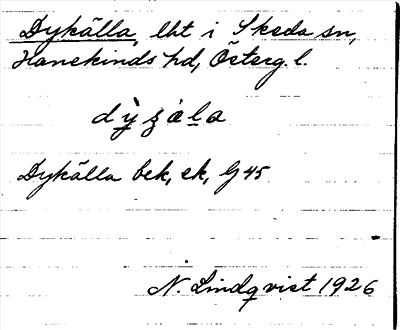 Dykälla, lht i Skeda sn,
Hanekinds hd, Österg. l.
Dykälla bek, ek, G 45
N. Lindqvist 1926